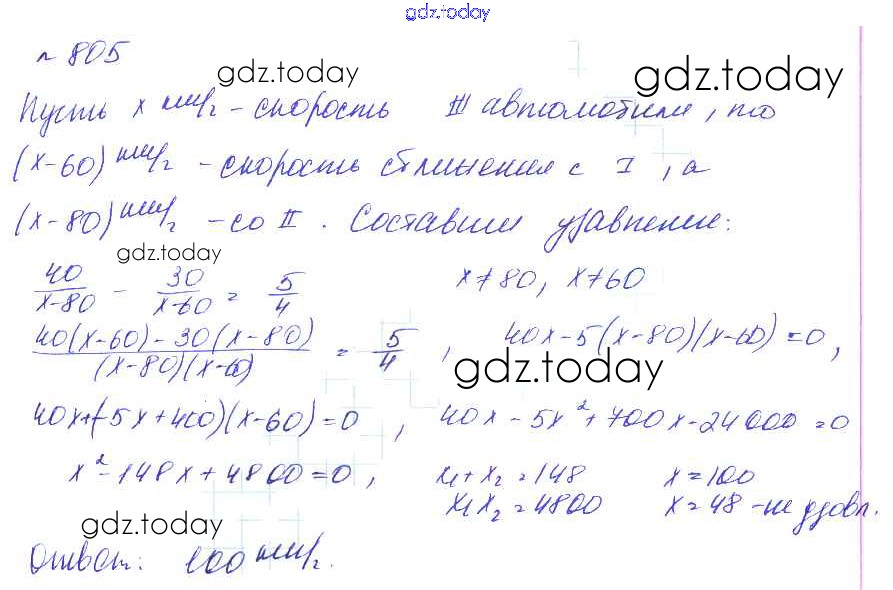 gdz.today
№ 805
gdz.today gdz.today
Пусть x км/ч – скорость III автомобиля, то
(x-60) км/ч – скорость сближения с I, а
(x-80) км/ч – со II. Составим уравнение:
gdz.today
40/(x-80) - 30/(x-60) = 5/4 x≠80, x≠60
(40(x-60)-30(x-80))/((x-80)(x-60)) = 5/4, 40x-5(x-80)(x-60)=0,
gdz.today
40x+(-5x+400)(x-60)=0, 40x-5x²+700x-24000=0
x²-148x+4800=0, x₁+x₂=148 x=100
x₁x₂=4800 x=48 -не удовл.
gdz.today
Ответ: 100 км/ч.